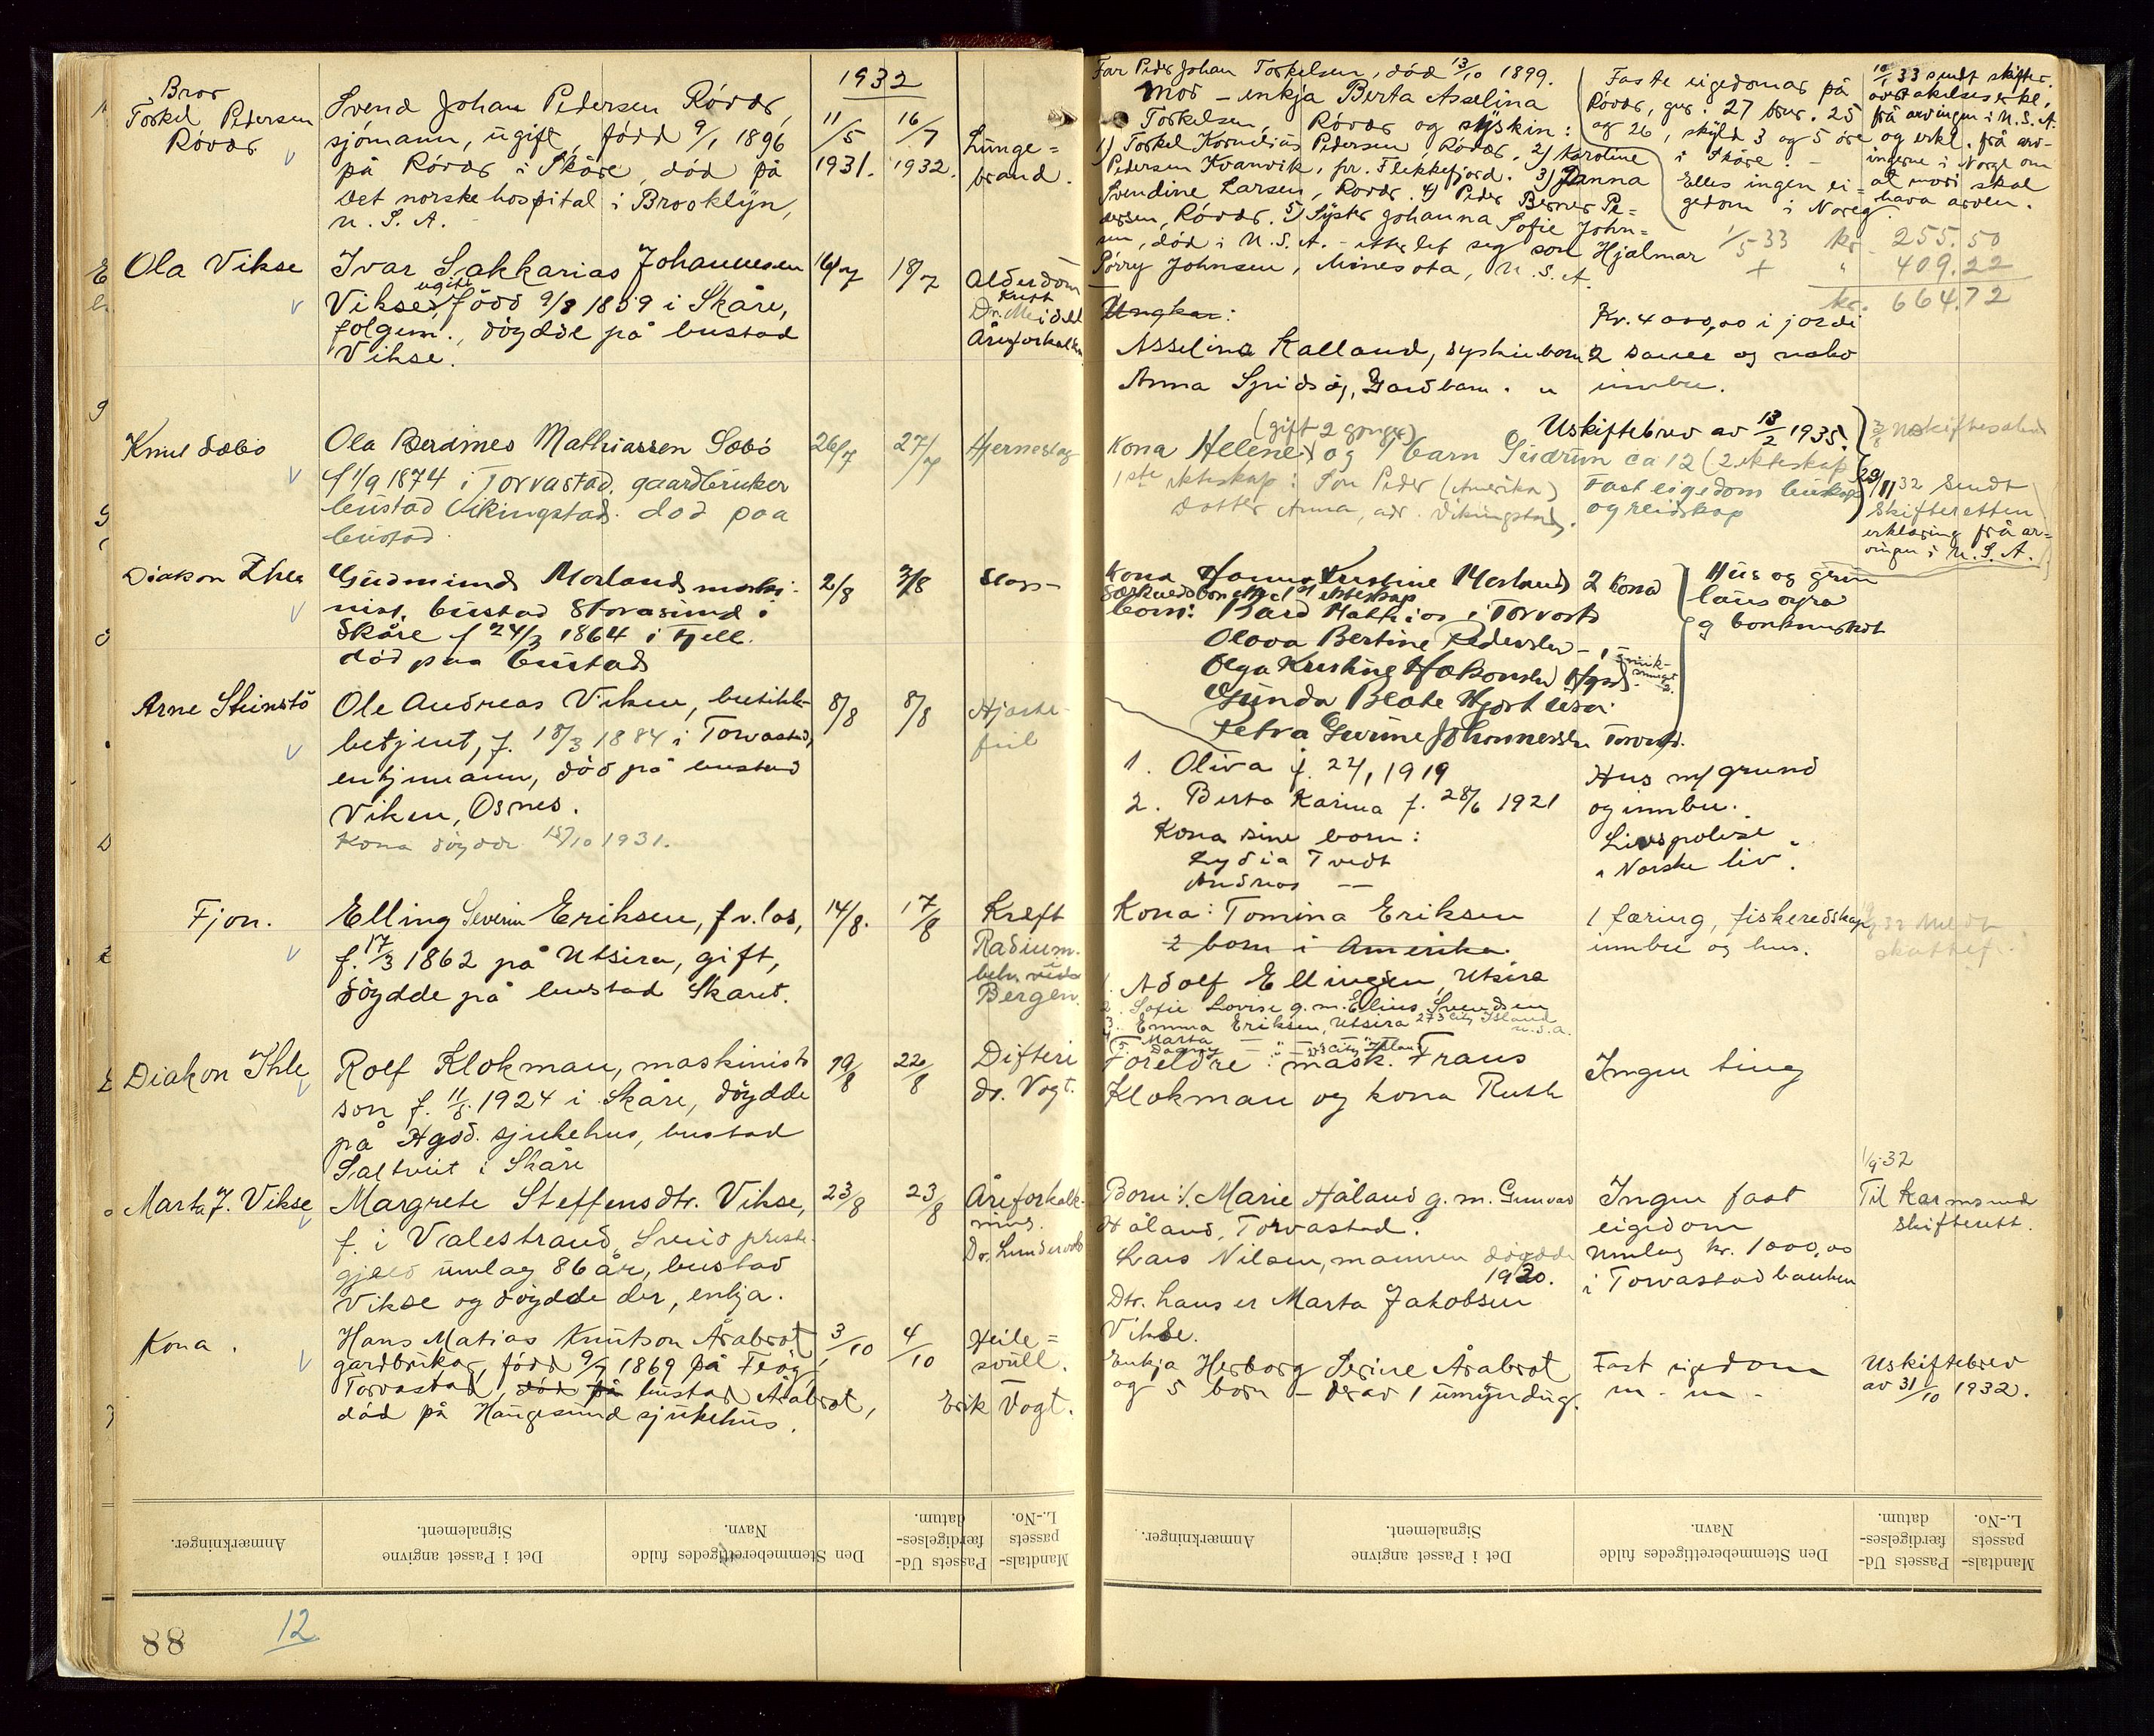 1932
Bror
Torkel Pedersen
Røvær
Svend Johan Pedersen Røvær,
sjømann, ugift, fødd 9/1 1896
på Røvær i Skåre, død på
Det norske hospital i Brooklyn,
U. S. A.
11/5 1931.
16/7 1932.
Lunge=
brand.
Far Peder Johan Torkelsen, død 13/10 1899.
Mor – enkja Berta Asselina
Torkelsen, Røvær og syskin:
1) Torkel Kornelius Pedersen Røvær, 2) Karoline
Pedersen Kvanvik, pr. Flekkefjord. 3) Janna
Svendine Larsen, Røvær. 4) Peder Berner Pe=
dersen, Røvær. 5) Syster Johanna Sofie John=
sen, død i U. S. A. – etterlet seg son Hjalmar
Perry Johnsen, Minesota, U. S. A.
Faste eigedomar på
Røvær, gnr. 27 bnr. 25
og 26, skyld 3 og 5 øre
i Skåre. –
Elles ingen ei=
gedom i Noreg.
10/1 33 sendt skifter.
overtakelseserkl.
frå arvingen i U. S. A.
og erkl. frå arv-
ingerne i Norge om
at mori skal
hava arven.
1/5 33 kr. 255.50
+ " 409.22
kr. 664.72
Ola Vikse
Ivar Sakkarias Johannesen
Vikse, ugift, fødd 9/8 1859 i Skåre,
følgem., døydde på bustad
Vikse.
16/7
18/7
Alderdom
Kreft
Dr. Meidell
Åreforkalkn
Ungkar:
Asselina Kalland, syskinborn
Anna Spidsøy, Gardbarn. "
Kr. 4000,00 i jordi
2 sauer og noko
innbu.
Knut Sæbø
Ola Berdines Mathiassen Sæbø
f 1/9 1874 i Torvastad. gaardbruker
bustad Vikingstad. død paa
bustad.
26/7
27/7
Hjerneslag
(gift 2 gonger)
Kona Helene og 1 barn Gudrun ca 12 (2 ekteskap
1ste ekteskap: Son Peder (Amerika)
Dotter Anna, adr. Vikingstad.
Uskiftebrev av 13/2 1935.
Fast eigedom buskap
og reidskap
29/11 32 sendt
skifteretten
erklæring frå ar=
vingen i U. S. A.
Diakon Ihle
Gudmund Morland maski-
nist, bustad Storasund i
Skåre f 24/3 1864 i Fjell.
død paa bustad
2/8
3/8
Slag
Kona Hanna Kristine Morland 2 Kona
born: Bård Mathias i Torvast
Olava Bertine Pedersen – " –
Olga Kristine Håkonsen Hgsd.
Gunda Beate Hjortesen
Petra Gurine Johannessen Torvast.
Hus og grun
laus øyra
og bankinskot
Arne Steinstø
Ole Andreas Viken, butikk-
betjent, f. 18/3 1884 i Torvastad,
enkjemann, død på bustad
Viken, Osnes.
Kona døydde 15/10 1931.
8/8
8/8
Hjarte-
feil
1. Oliva f. 24/1 1919
2. Berta Karina f. 28/6 1921
Kona sine born:
Lydia Tvedt
Andreas —
Hus m/ grund
og innbu.
Livspolise
"Norske liv".
Fjon.
Elling Severin Eriksen, f.v. los,
f. 17/3 1862 på Utsira, gift,
døydde på bustad Skaret.
14/8.
17/8
Kreft
Radium.
beh. ved
Bergen.
Kona: Tomina Eriksen
2 born i Amerika.
1. Adolf Ellingsen, Utsira
2. Sofie Lovise g. m. Elius Svendsen
3. Emma Eriksen, Utsira 273 City Island
U. S. A.
4. Marta
5. Dagny — " — City Island
1 færing, fiskereidskap
innbu og hus.
Diakon Ihle
Rolf Klokman, maskinist
son f. 11/8 1924 i Skåre, døydde
på Hgsd. sjukehus, bustad
Saltveit i Skåre
19/8
22/8
Difteri
dr. Vogt.
Foreldre: mask. Frans
Klokman og kona Ruth
Ingen ting
Marta J. Vikse
Margrete Steffensdtr. Vikse,
f. i Valestrand, Sveio preste-
gjeld umlag 86 år, bustad
Vikse og døydde der, enkja.
23/8
23/8
Åreforkalk-
ning.
Dr. Lundevold
Born: 1. Marie Håland g. m. Gunvar
Håland, Torvastad.
Lars Nilsen, mannen døydde
1920.
Dtr. hans er Marta Jakobsen
Vikse.
Ingen fast
eigedom
Umlag kr. 1000,00
i Torvastad banken
1/9 32
Til Karmsund
skifterett.
Kona.
Hans Matias Knutson Årabrot,
gardbrukar, fødd 9/7 1869 på Feøy,
Torvastad, død på bustad Årabrot,
død på Haugesund sjukehus.
3/10
4/10
Heile=
svull.
Erik Vogt.
Enkja Herborg Serine Årabrot
og 5 born – derav 1 umyndug.
Fast eigedom
m. m.
Uskiftebrev
av 31/10 1932.
Anmærkninger.
Det i Passet angivne
Signalement.
Den Stemmeberettigedes fulde
Navn.
Passets Ud-
færdigelses-
datum.
Mandtals-
passets
L.-No.
Anmærkninger.
Det i Passet angivne
Signalement.
Den Stemmeberettigedes fulde
Navn.
Passets Ud-
færdigelses-
datum.
Mandtals-
passets
L.-No.
88
12